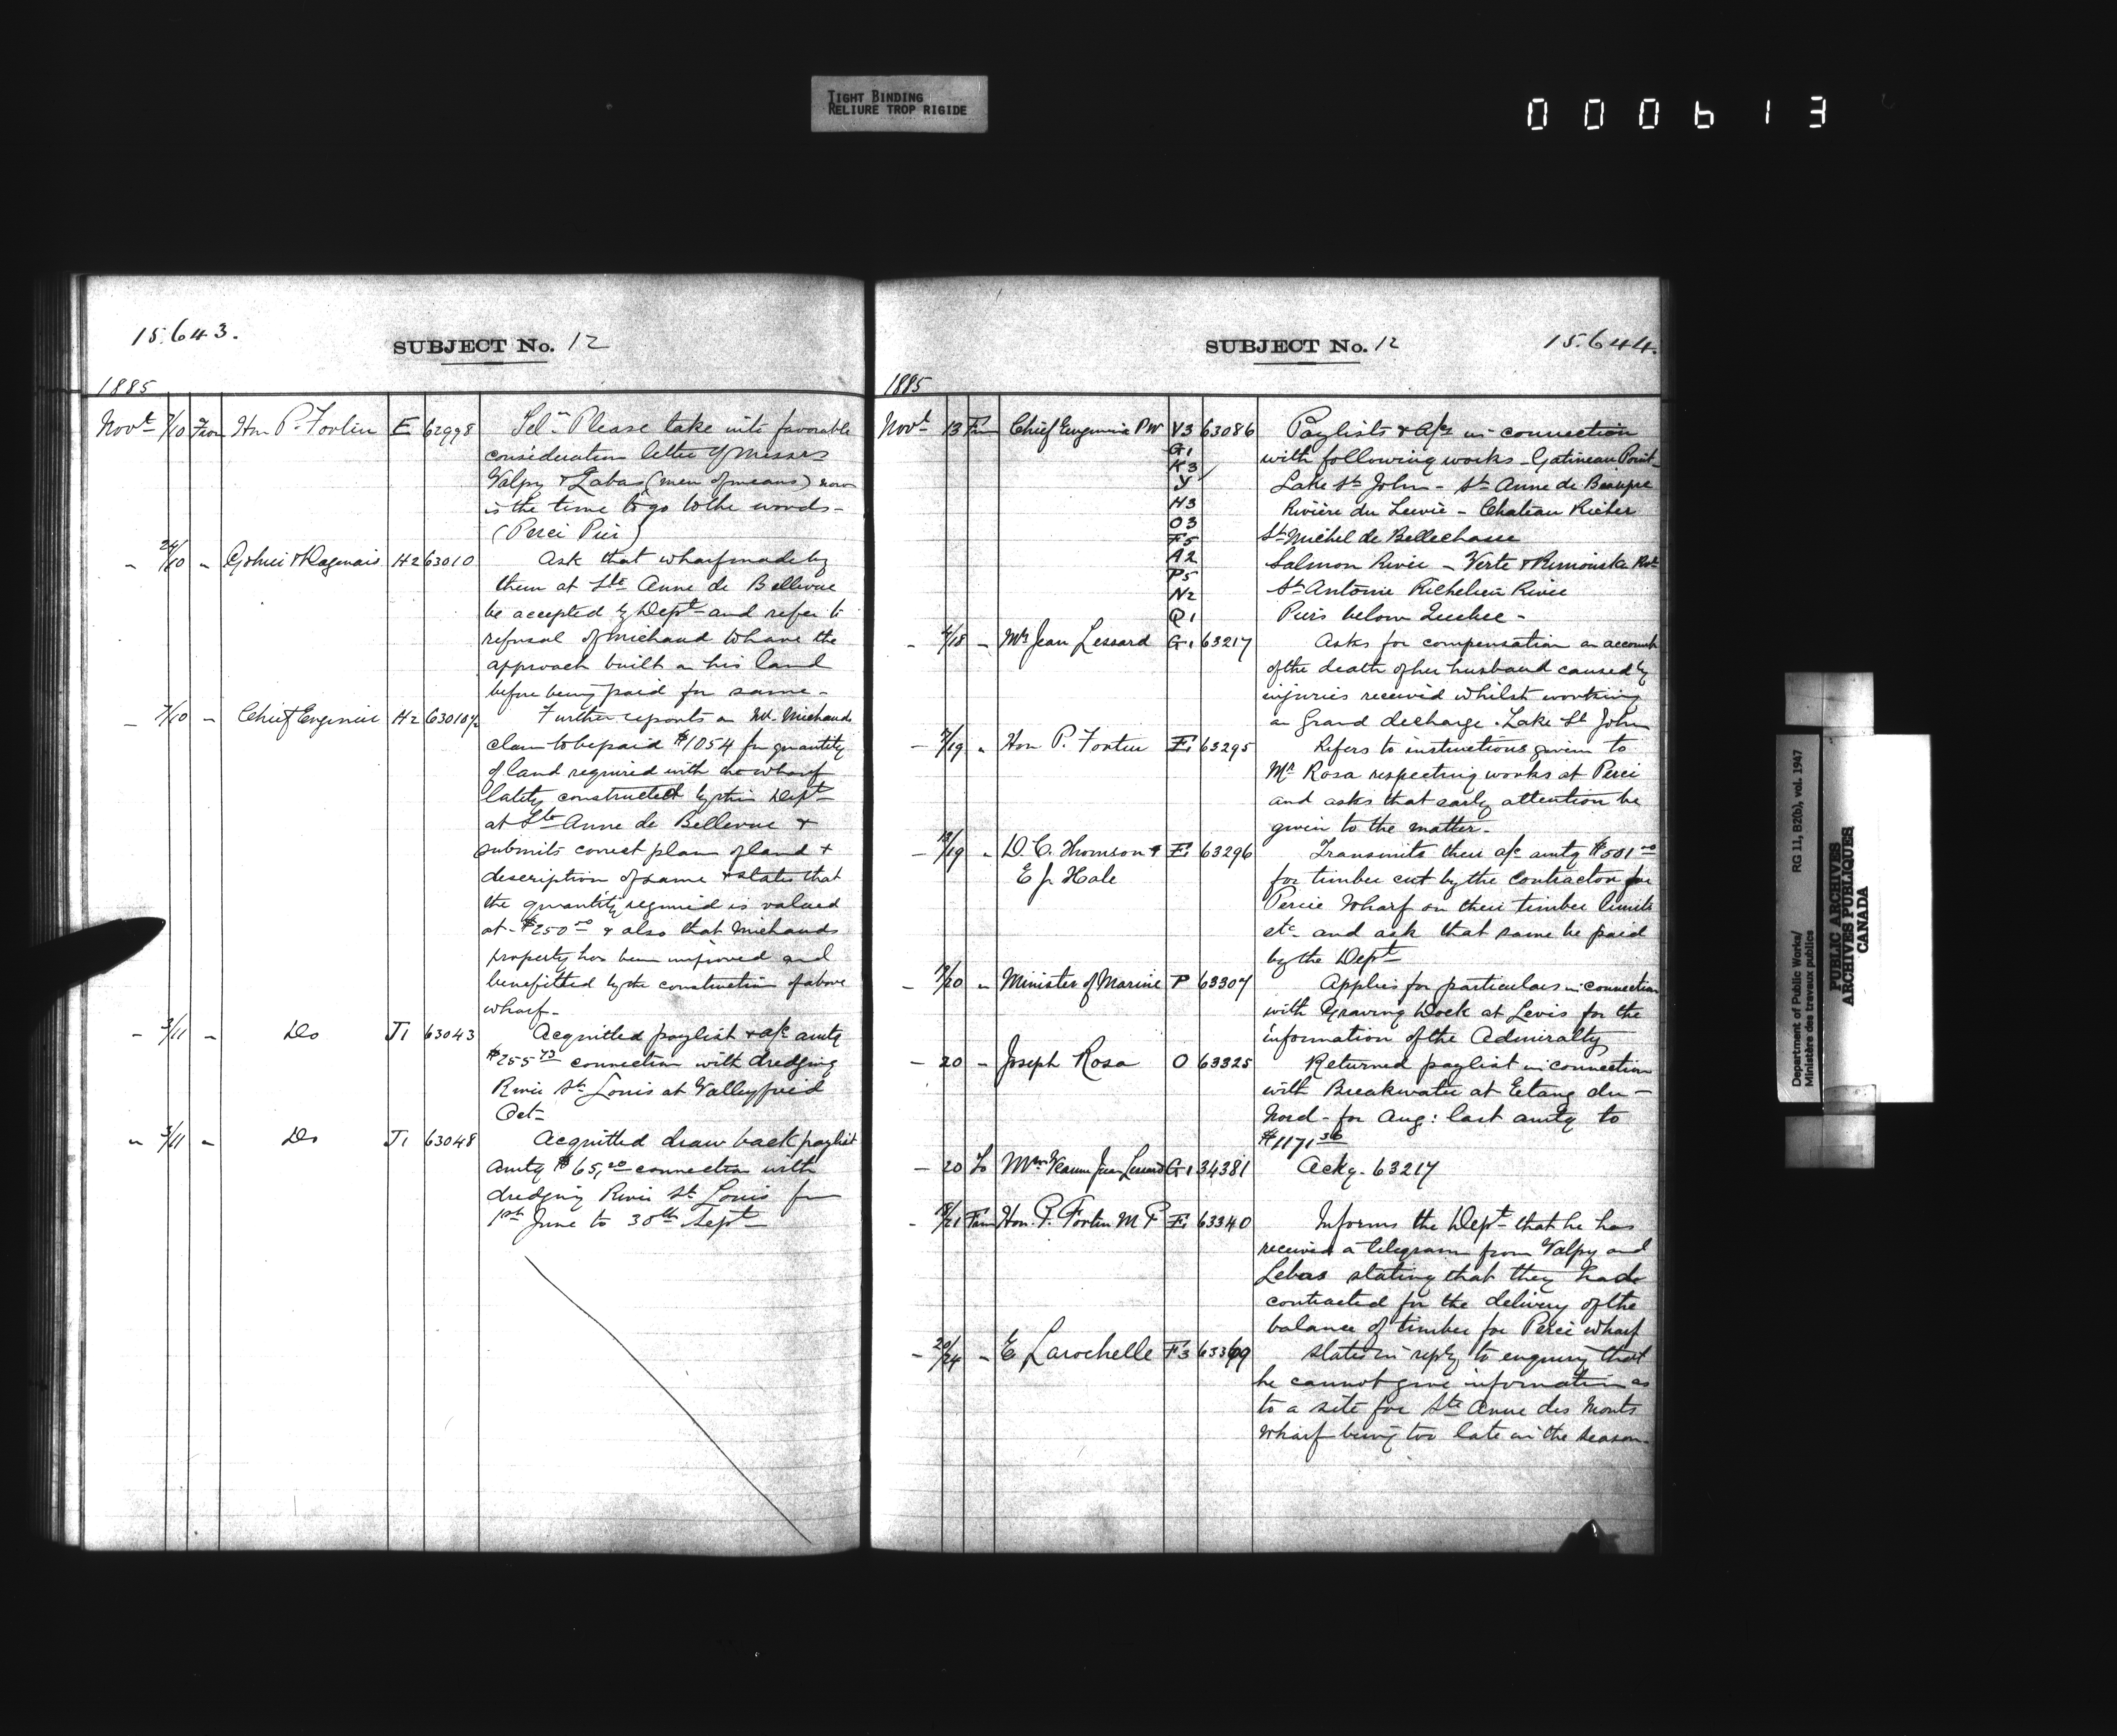 TIGHT BINDING
RELIURE TROP RIGIDE
000613
15.643.
SUBJECT No. 12
1885
Novt 7/10 From Hon P. Fortin E 62998 Tel. Please take into favorable
consideration letter of Messrs
Valpy & Labas (men of means) now
is the time to go to the woods-
(Perci Pier)
- 24/10 - & Dagenais H2 63010 Ask that wharf made by
them at Ste Anne de Bellevue
be accepted by Dept and refer to
refusal of Michaud to have the
approach built on his land
before being paid for same-
- 7/10 - Chief Engineer H2 63010½ Further reports on Mr. Michauds
claim to be paid $1054 for quantity
of land required with the wharf
lately constructed by this Dept
at Ste Anne de Bellevue &
submits correct plan of land &
description of same & states that
the quantity required is valued
at $250.00 & also that Michauds
property has been improved and
benefitted by the construction of above
wharf-
- 3/11 - Do J1 63043 Acquitted paylist & a/c amtg
$255 73 connection with dredging
River St Louis at Valleyfield
Oct-
" 3/11 - Do J1 63048 Acquitted draw back paylist
amtg $65,20 connection with
dredging River St Louis from
1st June to 30th Sept
SUBJECT No. 12
15.644.
1885
Novt 13 From Chief Engineer PW V3 63086 Paylists & a/cs in connection
G1 with following works - Gatineau Point-
K3
Y Lake St John - St Anne de Beaupre
H3 Riviere du Lievre - Chateau Richer
O3
F5 St Michel de Bellechasse
A2 Salmon River - Verte & Rimouski Rvt
P5
N2 St Antoine Richelieu River
Q1 Piers below Quebec -
- 4/18 - Mrs Jean Lessard G1 63217 Asks for compensation on account
of the death of her husband caused by
injuries received whilst working
on Grand decharge. Lake St John
- 7/19 " Hon P. Fortin E1 63295 Refers to instructions given to
Mr Rosa respecting works at Perci
and asks that early attention be
given to the matter-
- 13/19 " D. C. Thomson & E1 63296 Transmits their a/c amtg $501 00
E Jr Hale for timber cut by the contractor for
Percie Wharf on their timber limits
etc- and ask that same be paid
by the Dept
- /20 " Minister of Marine P 63307 Applies for particulars in connection
with Graving Dock at Levis for the
information of the Admiralty
- 20 - Joseph Rosa O 63325 Returned paylist in connection
with Breakwater at Etang du-
Nord- for Aug: last amtg to
$1171 36
- 20 To Mme Jean Lessard G1 34381 Ackg. 63217
- 18/21 From Hon. P. Fortin M P E1 63340 Informs the Dept that he has
received a telegram from Valpy and
Lebas stating that they had
contracted for the delivery of the
balance of timber for Perci wharf
- 20/24 - E Larochelle F3 63369 States in reply to enquiry that
he cannot give information as
to a site for Ste Anne des Monts
Wharf being too late in the season-
Department of Public Works/
Ministère des travaux publics
RG 11, B2(b), vol. 1947
PUBLIC ARCHIVES
ARCHIVES PUBLIQUES
CANADA